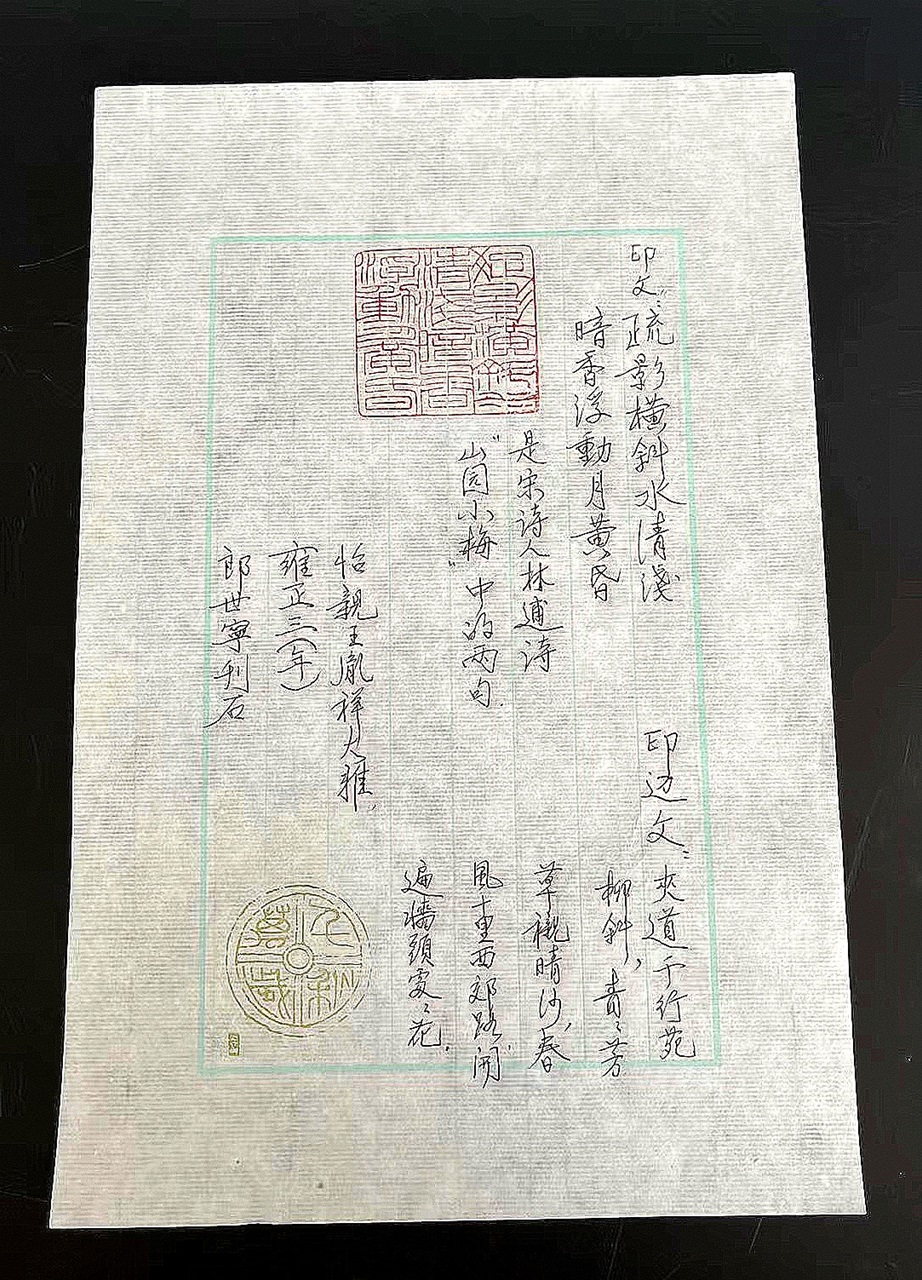 印文：疏影横斜水清淺
暗香浮動月黄昏
是宋诗人林逋诗
"山园小梅"中的两句.
印边文：夾道千行苑
柳斜，青〻芳
草襯晴沙，春
風重西郊路，開
遍墙頭處〻花.
怡親王胤祥大雅，
雍正三(年)
郎世寧刊石